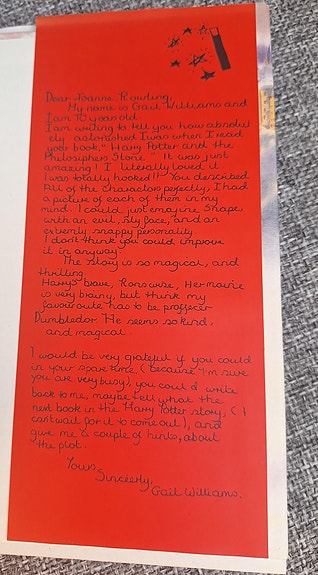 Dear Joanne Rowling,
My name is Gail Williams and
I am 10 years old
I am writing to tell you how absolut
ely astonished I was when I read
your book," Harry Potter and the
Philosiphers Stone." It was just
amazing! I literally loved it.
I was totally hooked!! You described
All of the charactors perfectly, I had
a picture of each of them in my
mind. I could just emajine Snape,
with an evil, sly face, and an
extremly snappy personality
I don't think you could improve
it in anyway
The story is so magical, and
thrilling
Harry's brave, Ron's wise, Hermoine
is very brainy, but think my
favouroute has to be proffecer
Dumbledor. He seems so kind,
and magical.
I would be very grateful if you could
in your spare time, (because I'm sure
you are very busy), you could write
back to me, maybe tell what the
next book in the Harry Potter story, (I
can't wait for it to come out), and
give me a couple of hints, about
the plot.
Yours
Sincerely,
Gail Williams.